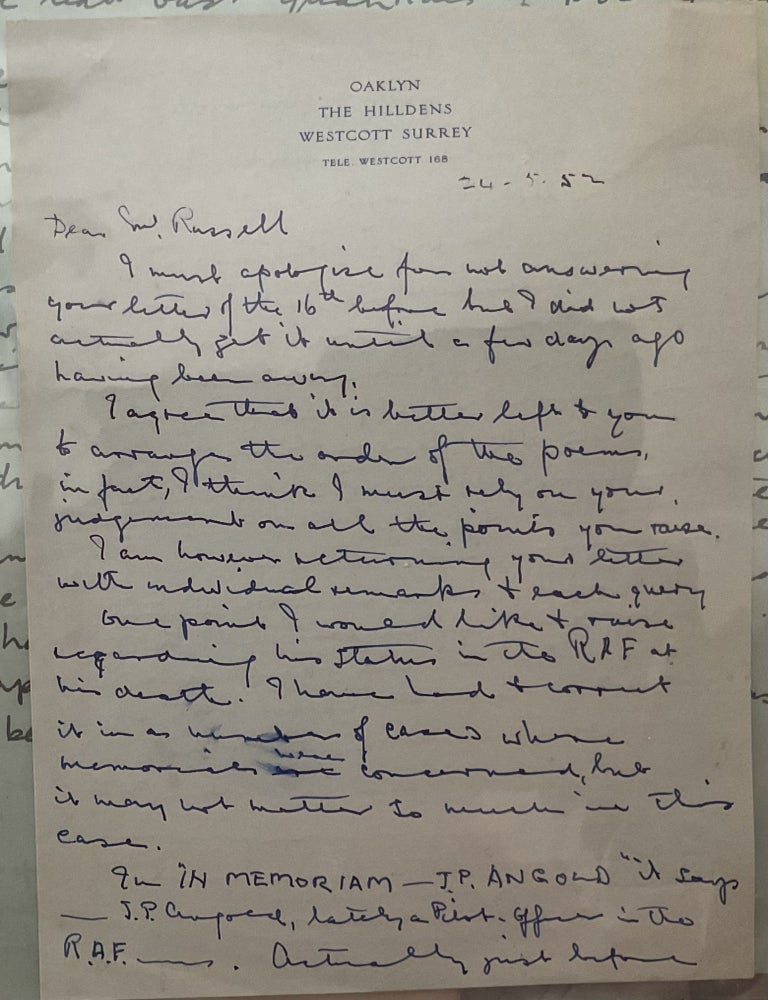 OAKLYN
THE HILLDENS
WESTCOTT SURREY
TELE. WESTCOTT 168
24-5-52
Dear Mr. Russell
I must apologise for not answering
your letter of the 16th before but I did not
actually get it until a few days ago
having been away.
I agree that it is better left to you
to arrange the order of the poems,
in fact, I think I must rely on your
judgement on all the points you raise.
I am however returning your letter
with individual remarks to each query
One point I would like to raise
regarding his status in the RAF at
his death. I have had to correct
it in a number of cases where
memorials were concerned, but
it may not matter so much in this
case.
In "IN MEMORIAM — J.P. ANGOLD" it says
— J.P. Angold, lately a Pilot-Officer in the
R.A.F. — . Actually just before